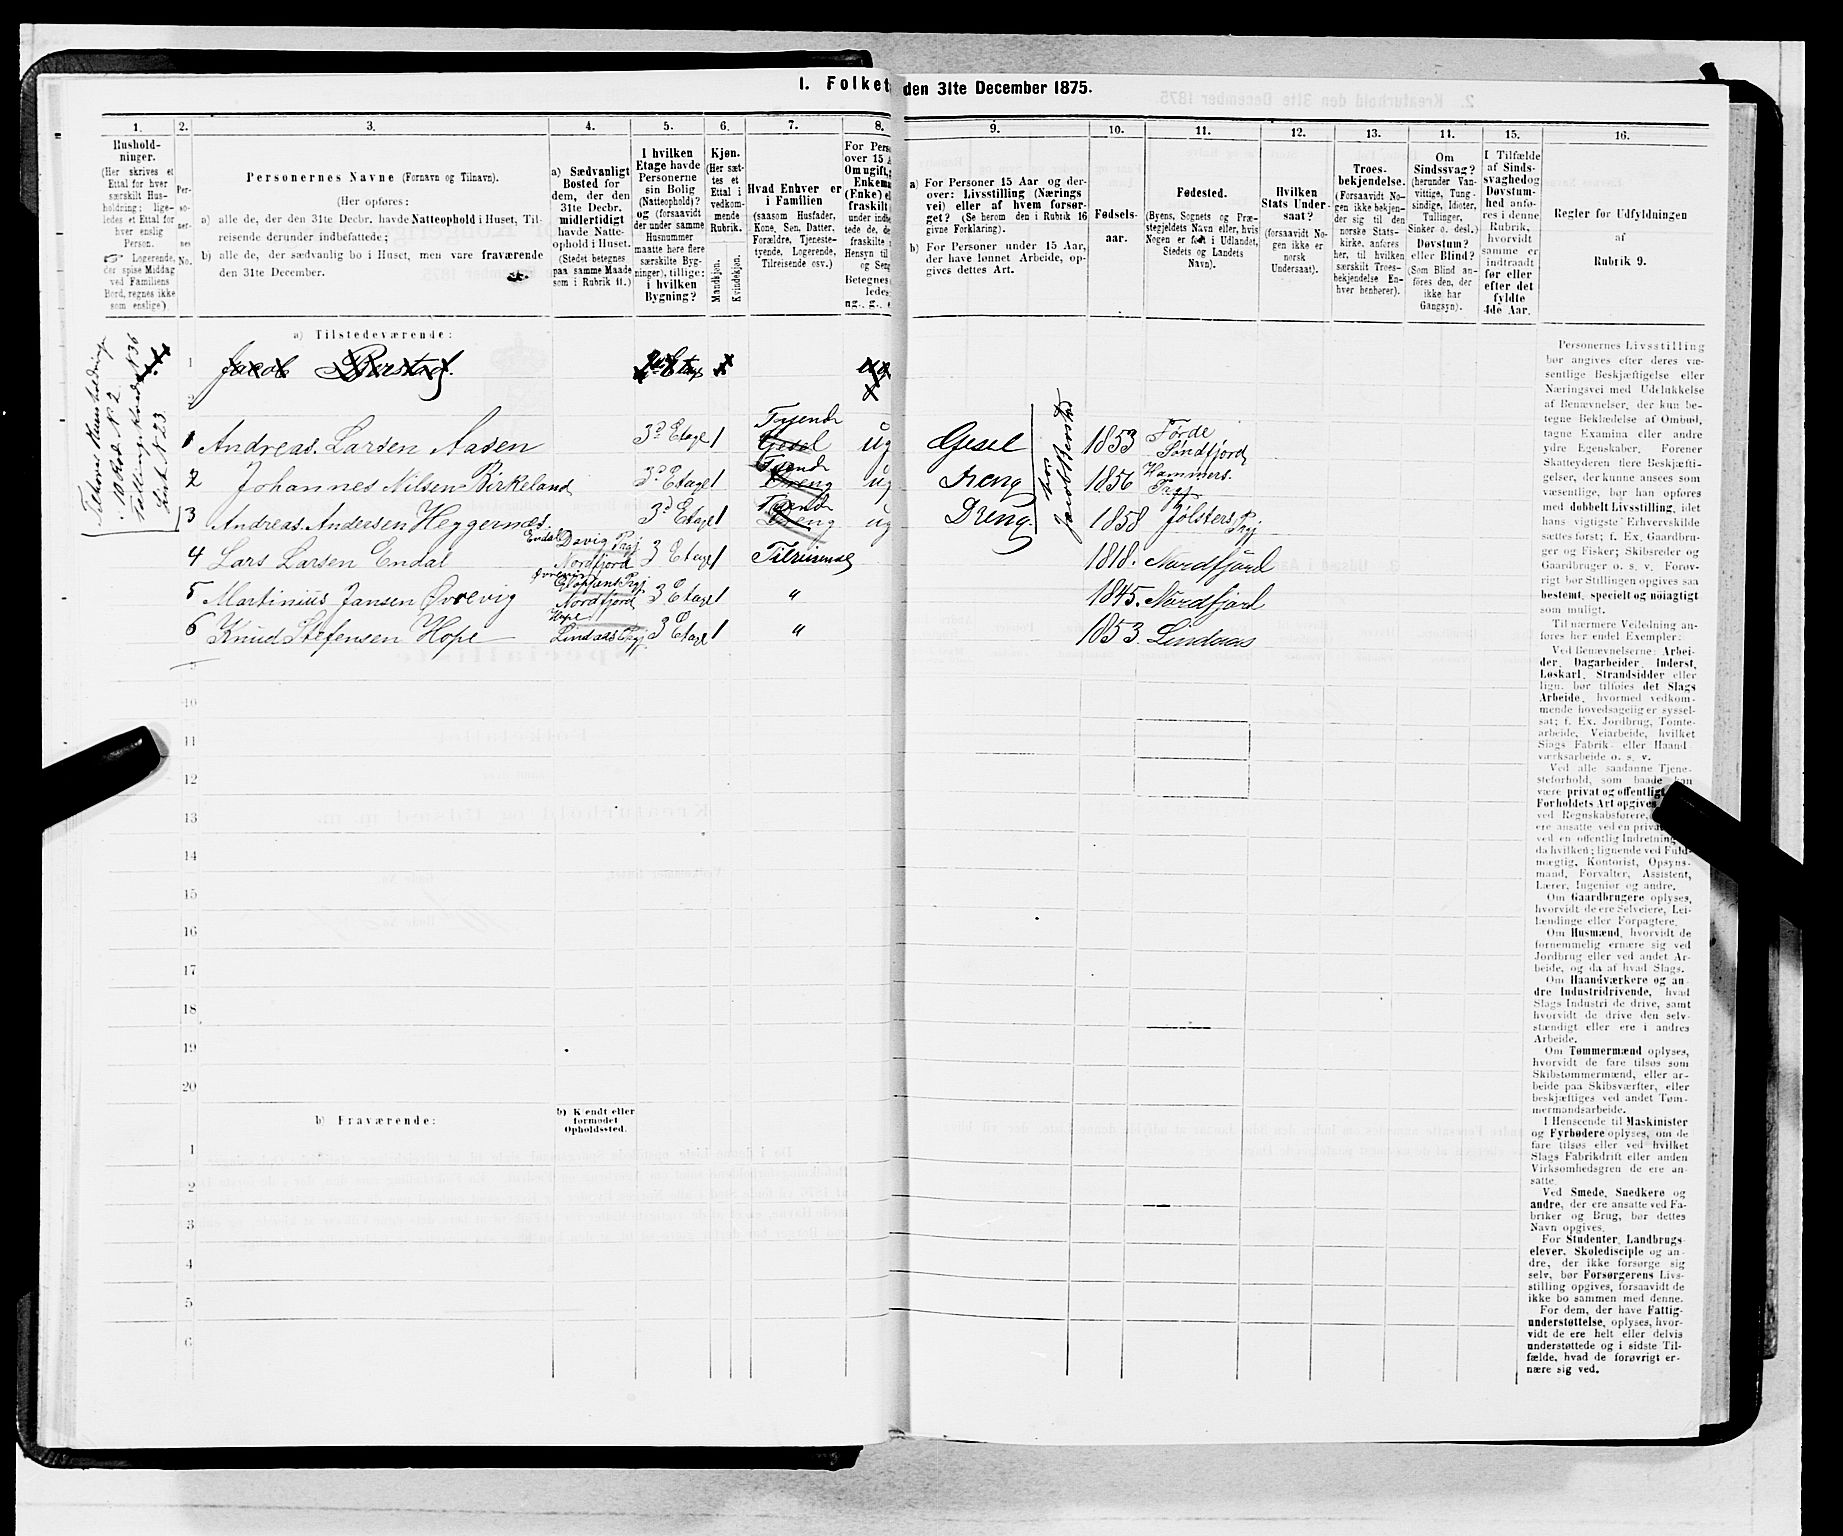 1. Folket
den 31te December 1875.
1.
2.
3.
4.
5.
6.
7.
8.
9.
10.
11.
12.
13.
14.
15.
16.
Husholdninger.
(Her skrives et
Ettal for hver
særskilt Husholdning;
ligeledes et Ettal for
hver enslig
Person.
Logerende,
der spise Middag
ved Familiens
Bord, regnes ikke
som enslige.)
Personernes No.
Personernes Navne (Fornavn og Tilnavn).
(Her opføres:
a) alle de, der den 31te Decbr. havde Natteophold i Huset, Tilreisende
derunder indbefattede;
b) alle de, der sædvanlig bo i Huset, men vare fraværende
den 31te December.
a) Sædvanligt
Bosted for
dem, der den
31te Decbr.
midlertidigt
havde Natteophold
i Huset.
(Stedet betegnes
paa samme Maade
som i Rubrik 11.)
I hvilken
Etage havde
Personerne
sin Bolig
(Natteophold)?
og (forsaavidt
der under samme
Husnummer
maatte høre flere
særskilte Bygninger),
tillige:
i hvilken
Bygning?
Kjøn.
(Her sættes
et
Ettal i
vedkommende
Rubrik.
Mandkjøn.
Kvindekjøn.
Hvad Enhver er
i Familien
(saasom Husfader,
Kone, Søn, Datter,
Forældre, Tjenestetyende,
Logerende,
Tilreisende osv.)
For Pers
over 15 A
Om ugift,
Enkema
(Enke) el
fraskilt
a) For Personer 15 Aar og derover:
Livsstilling (Næringsvei)
eller af hvem forsørget?
(Se herom den i Rubrik 16
givne Forklaring).
b) For Personer under 15 Aar,
der have lønnet Arbeide, opgives
dettes Art.
Fødselsaar.
Fødested.
(Byens, Sognets og Præstegjeldets
Navn eller, hvis
Nogen er født i Udlandet,
Stedets og Landets
Navn).
Hvilken
Stats Undersaat?
(forsaavidt Nogen
ikke er
norsk
Undersaat).
Troesbekjendelse.
(Forsaavidt Nogen
ikke bekjender
sig til den
norske Statskirke,
anføres
her, til hvilken
særskilt Troesbekjendelse
Enhver
henhører).
Om
Sindssvag?
(herunder Vanvittige,
Tungsindige,
Idioter,
Tullinger,
Sinker o. desl.)
Døvstum?
eller Blind?
(Som Blind anføres
den, der
ikke har
Gangsyn).
I Tilfælde
af Sindssvaghed
og
Døvstumhed
anføres
i denne
Rubrik,
hvorvidt
samme er
indtraadt
før eller
efter det
fyldte
4de Aar.
Regler for Udfyldningen
af
Rubrik 9.
a) Tilstedeværende:
1 Jacob Berstad
1 Andreas Larsen Aasen 3d Etage 1 Tyende ug Gesel 1853 Førde Søndfjord
2 Johannes Nilsen Birkeland 3d Etage 1 Tyende ug Dreng 1856 Hammers.
3 Andreas Andersen Heggernæs. 3d Etage 1 Tyende ug Dreng 1858 Jølsters Pgj
hos Jacob Berstad
4 Lars Larsen Endal Endal Davig Pgj Nordfjord 3 Etage 1 Tilreisende 1818. Nordfjord
5 Martinius Jansen Øvrevig Nordfjord 3 Etage 1 " 1845. Nordfjord
6 Knud Stefensen Hope Hope Lindaas Pgj 3 Etage 1 " 1853. Lindaas
10
11
12
13
14
15
16
17
18
19
20
b) Fraværende:
b) Kjendt eller
formodet
Opholdssted.
1
2
3
4
5
6
Personernes Livsstilling
bør angives efter deres væsentlige
Beskjæftigelse eller
Næringsvei med Udelukkelse
af Benævnelser, der kun betegne
Beklædelse af Ombud,
tagne Examina eller andre
ydre Egenskaber. Forener
Skatteyderen flere Beskjæftigelser,
der kunne ansees som
væsentlige, bør han opføres
med dobbelt Livsstilling, idet
hans vigtigste Erhvervskilde
sættes først; f. Ex. Gaardbruger
og Fisker; Skibsreder og
Gaardbruger o. s. v. Forøvrigt
bør Stillingen opgives saa
bestemt, specielt og nøiagtigt
som muligt.
Til nærmere Veiledning anføres
her endel Exempler:
Ved Benævnelserne: Arbeider,
Dagarbeider, Inderst,
Løskarl, Strandsidder eller
lign. bør tilføies det Slags
Arbeide, hvormed vedkommende
hovedsagelig er sysselsat;
f. Ex. Jordbrug, Tomtearbeide,
Veiarbeide, hvilket
Slags Fabrik- eller Haandværksarbeide
o. s. v.
Ved alle saadanne Tjenesteforhold,
som baade kan
være privat og offentligt
Forholdets Art opgives
ved Regnskabsførere,
ere ansatte ved en privat
ved en offentlig Indretning
da hvilken; lignende ved Fuldmægtig,
Kontorist, Opsynsmand,
Forvalter, Assistent,
Lærer, Ingeniør og andre.
Om Gaardbrugere oplyses,
hvorvidt de ere Selveiere, Leilændinge
eller Forpagtere.
Om Husmænd, hvorvidt de
fornemmelig ernære sig ved
Jordbrug eller ved andet Arbeide,
og da af hvad Slags.
Om Haandværkere og andre
Industridrivende, hvad
Slags Industri de drive, samt
hvorvidt de drive den selvstændigt
eller ere i andres
Arbeide.
Om Tømmermænd oplyses,
hvorvidt de fare tilsøs som
Skibstømmermænd, eller arbeide
paa Skibsværfter, eller
beskjæftiges ved andet Tømmermandsarbeide.
I Henseende til Maskinister
og Fyrbødere oplyses, om de
fare tilsøs eller ved hvilket
Slags Fabrikdrift eller anden
Virksomhedsgren de ere ansatte.
Ved Smede, Snedkere og
andre, der ere ansatte ved Fabriker
og Brug, bør dettes
Navn opgives.
For Studenter, Landbrugselever,
Skoledisciple og andre,
der ikke forsørge sig
selv, bør Forsørgerens Livsstilling
opgives, forsaavidt de
ikke bo sammen med denne.
For dem, der have Fattigunderstøttelse,
oplyses, hvorvidt
de ere helt eller delvis
understøttede og i sidste Tilfælde,
hvad de forøvrigt ernære
sig ved.